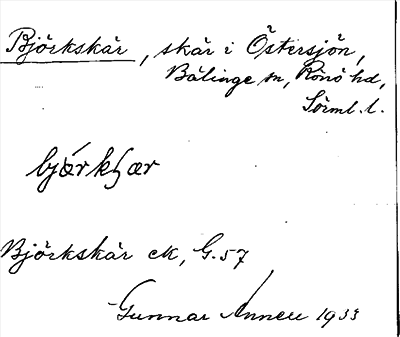 Björkskär, skär i Östersjön,
Bälinge sn, Rönö hd,
Sörml. l.
Björkskär ek, G. 57
Gunnar 1933